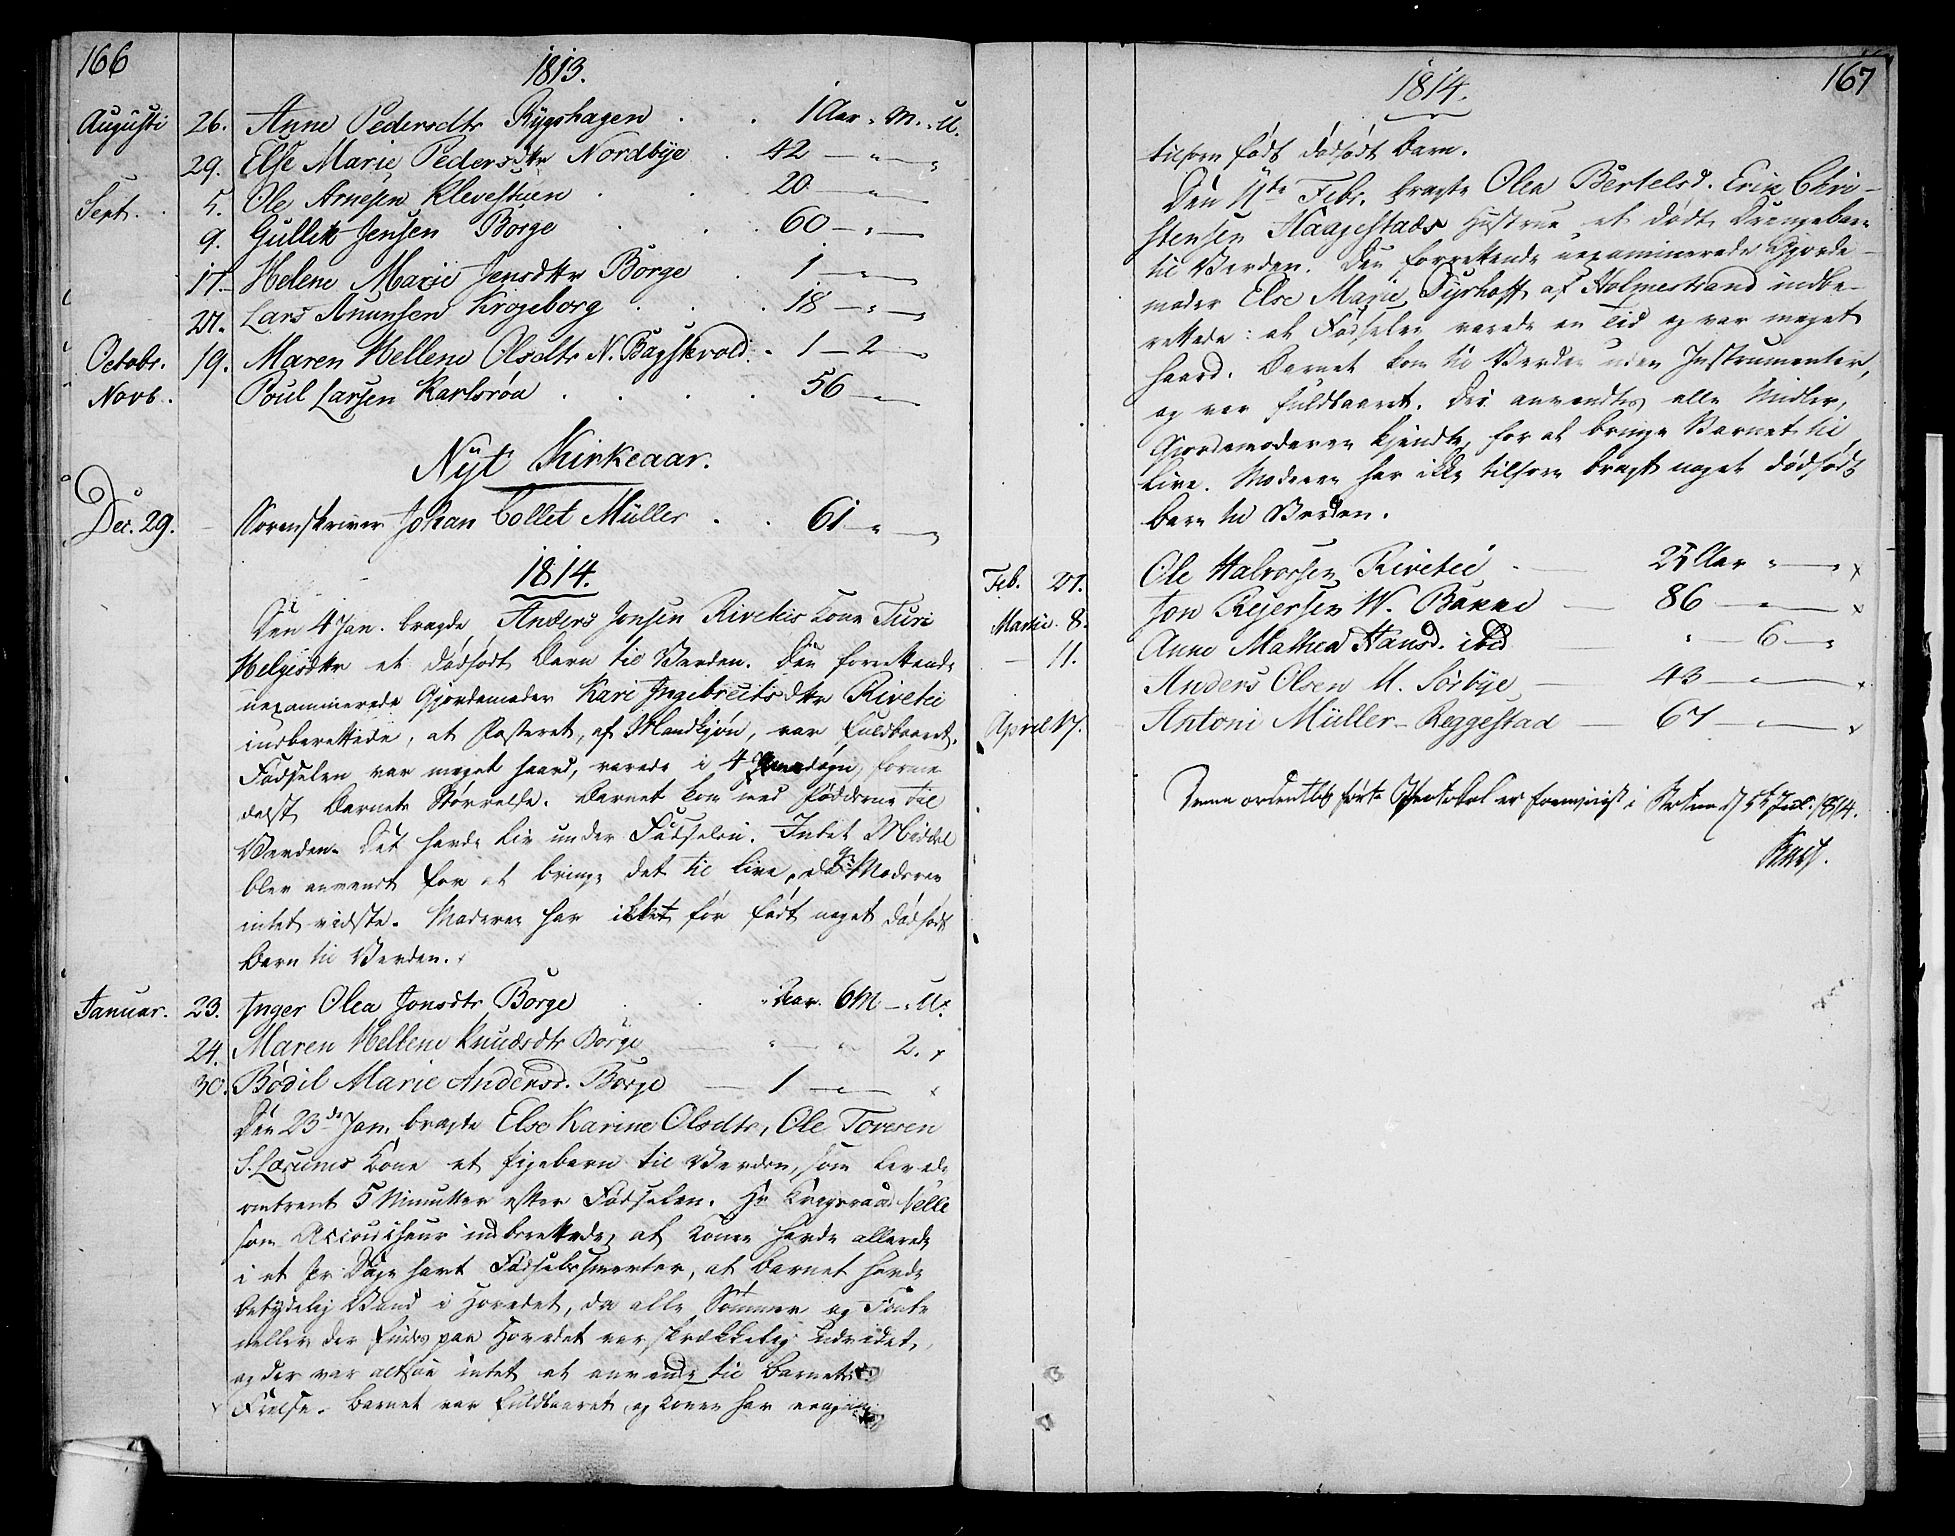 166
1813.
Augusti 26. Anne Pedersdtr Rygshagen . . 1 Aar „ M. „ U.
29. Else Marie Pedersdtr Nordbye . 42 — „ — „
Sept. 5. Ole Arnesen Klevestuen . . . 20 — „ —
9. Gullik Jensen Borge . . . 60 — „ —
17. Helene Marie Jensdttr Borge . 1 — „ —
27. Lars Anunsen Krogeborg . . . 18 — „ — „
Octobr. 19. Maren Hellene Olsdtr N. Bagstevold . 1 — 2 — „
Novb. Poul Larsen Karlsrøa . . . . 56 — „ —
Nyt Kirkeaar.
Dec. 29. Sorenskriver Johan Collet Müller . . 61 „ — „
1814.
Den 4 Jan. bragde Anders Jonsen Riveties Kone Turi
Helgesdtr et dødfødt Barn til Verden. Den forrettende
uexaminerede Gjordemoder Kari Ingebretsdtr Rivetie
indberettede, at Fosteret, af Mandkjøn, var fuldbaaret.
Fødselen var meget haard, varede i 4 døgn, forme
delst Barnets Størrelse. Barnet kom med Fødderne til
Verden. Det havde Liv under Fødselen. Intet Middel
blev anvendt for at bringe det til Live, da Moderen
intet vidste. Moderen har ikke før født noget dødfødt
Barn til Verden.
Januar. 23. Inger Olea Jonsdtr Borge . . „ Aar. 6 M — „ U.
24. Maren Hellene Knudsdtr Borge — „ — „ 2.
30. Bodil Marie Andersd. Borge — 1 — „ —
Den 23de Jan. bragte Else Karine Olsdtr, Ole Toresen
S. Løcumes Kone et Pigebarn til Verden, som levede
omtrent 5 Minutter efter Fødselen. Hr Krigsraad Nelle
som Accoucheur indberettede, at Konen havde allerede
i et Par Dage havt Fødselssmerter, at Barnet havde
betydelig Vand i Hovedet, da alle Sømmer og Fonta
neller der findes paa Hovedet var skrækkelig udvidet,
og der var altsaa intet at anvende til Barnets
Frelse. Barnet var fuldbaaret og Konen har engang
167
1814.
tilforn født dødfødt Barn.
Den 11te Febr. bragte Olea Bertelsd. Erik Chri-
stensen Haagestads Hustrue et dødt Drengebarn
til Verden. Den forrettende uexaminerede Gjorde-
moder Else Marie Dyrhoff af Holmestrand indbe-
rettede: at Fødselen varede en Tid og var meget
haard. Barnet kom til Verden uden Instrumenter,
og var fuldbaaret. Der anvendtes alle Midler,
Gjordemoderen kjendte, for at bringe Barnet til
Live. Moderen har ikke tilforn bragt noget dødfødt
Barn til Verden.
Feb. 21. Ole Halvorsen Rivetie — 25 Aar „ —
Martii. 8. Jon Rejersen W. Bakke — 86 — „ —
— 11. Anne Mathea Hansd. ibid — „ — 6 — „
Anders Olsen M. Sørbye — 43 — „ —
April 17. Antoni Müller Reggestad — 67 — „ —
Denne ordentlig førte Protokol er foreviist i Botne d 5te Jul. 1814.